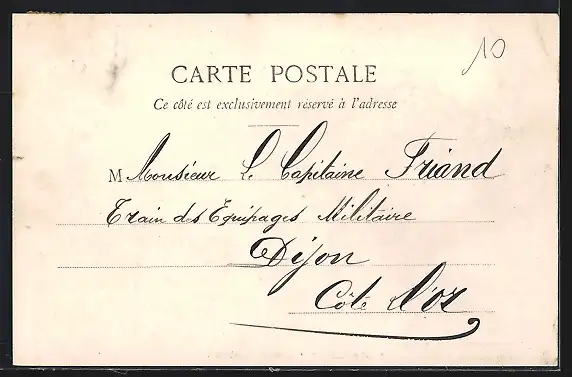 10
CARTE POSTALE
Ce côté est exclusivement réservé à l'adresse
M Monsieur Le Capitaine Friand
Train ds Equipages Militaire
Dijon
Côte d'or